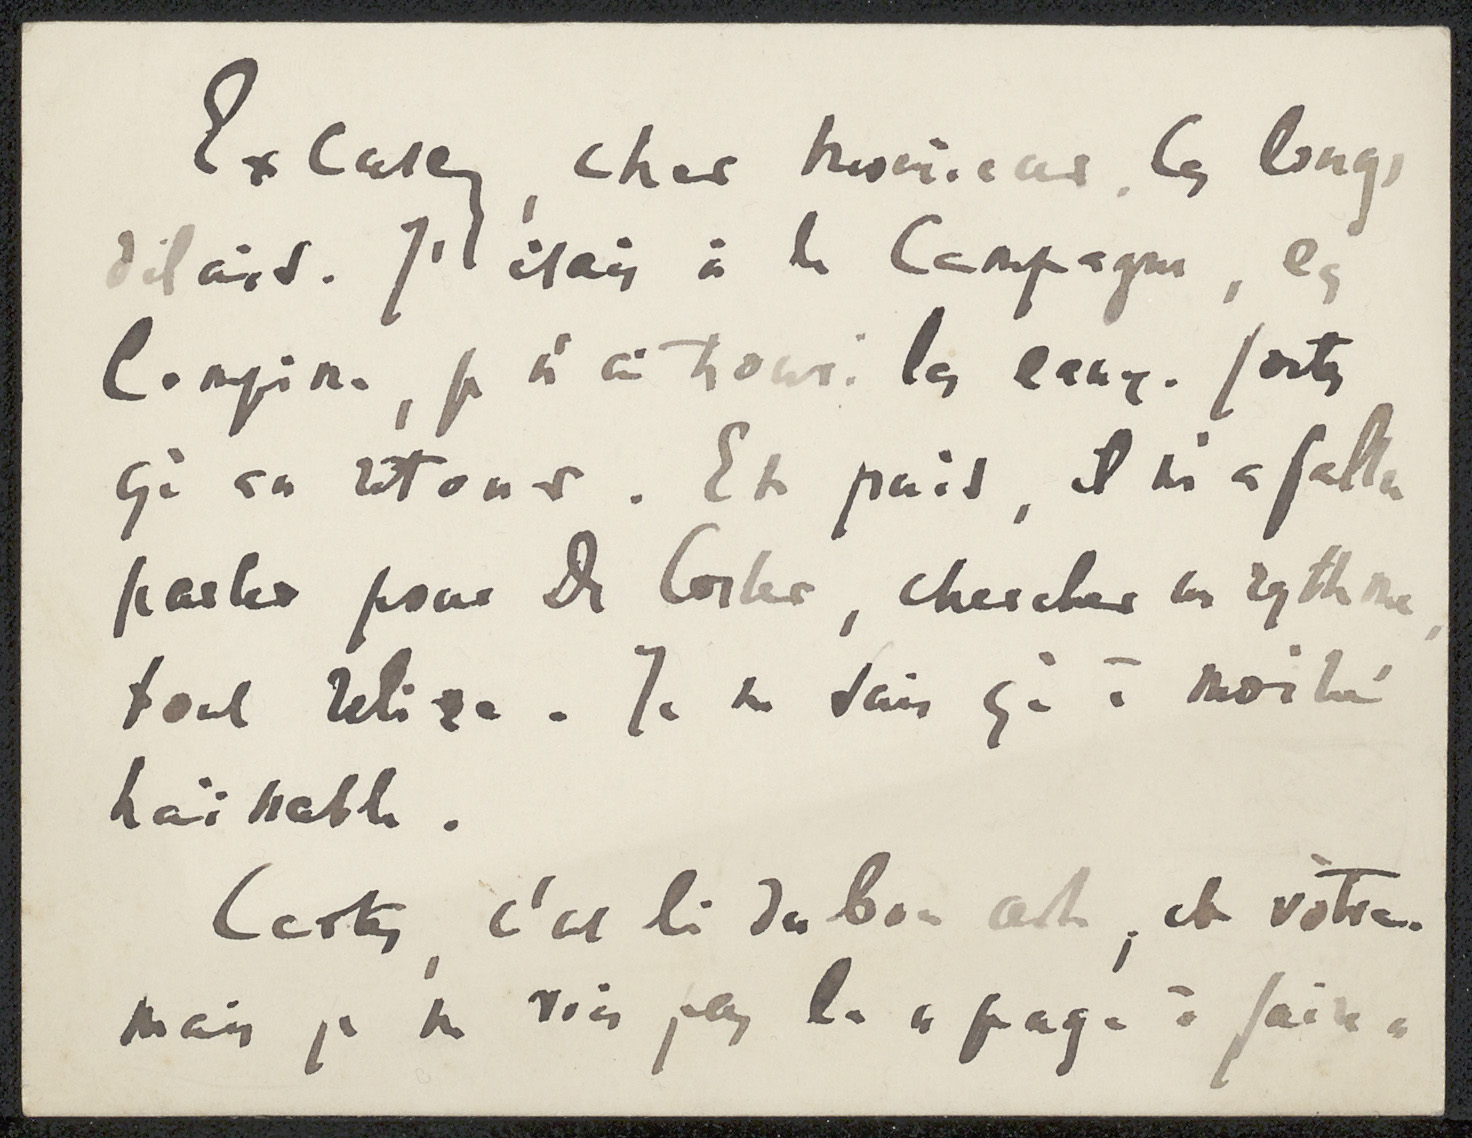 Excusez, cher monsieur, ces longs
délais. J'étais à la Campagne, en
Campine, je n'ai trouvé les eaux-fortes
qu'au retour. Et puis, il m'a fallu
parler pour De Coster, chercher un rythme,
tout relire. Je ne suis qu'à moitié
haïssable.
Certes, c'est là du bon art, et vôtre.
mais je ne vois pas la page à faire